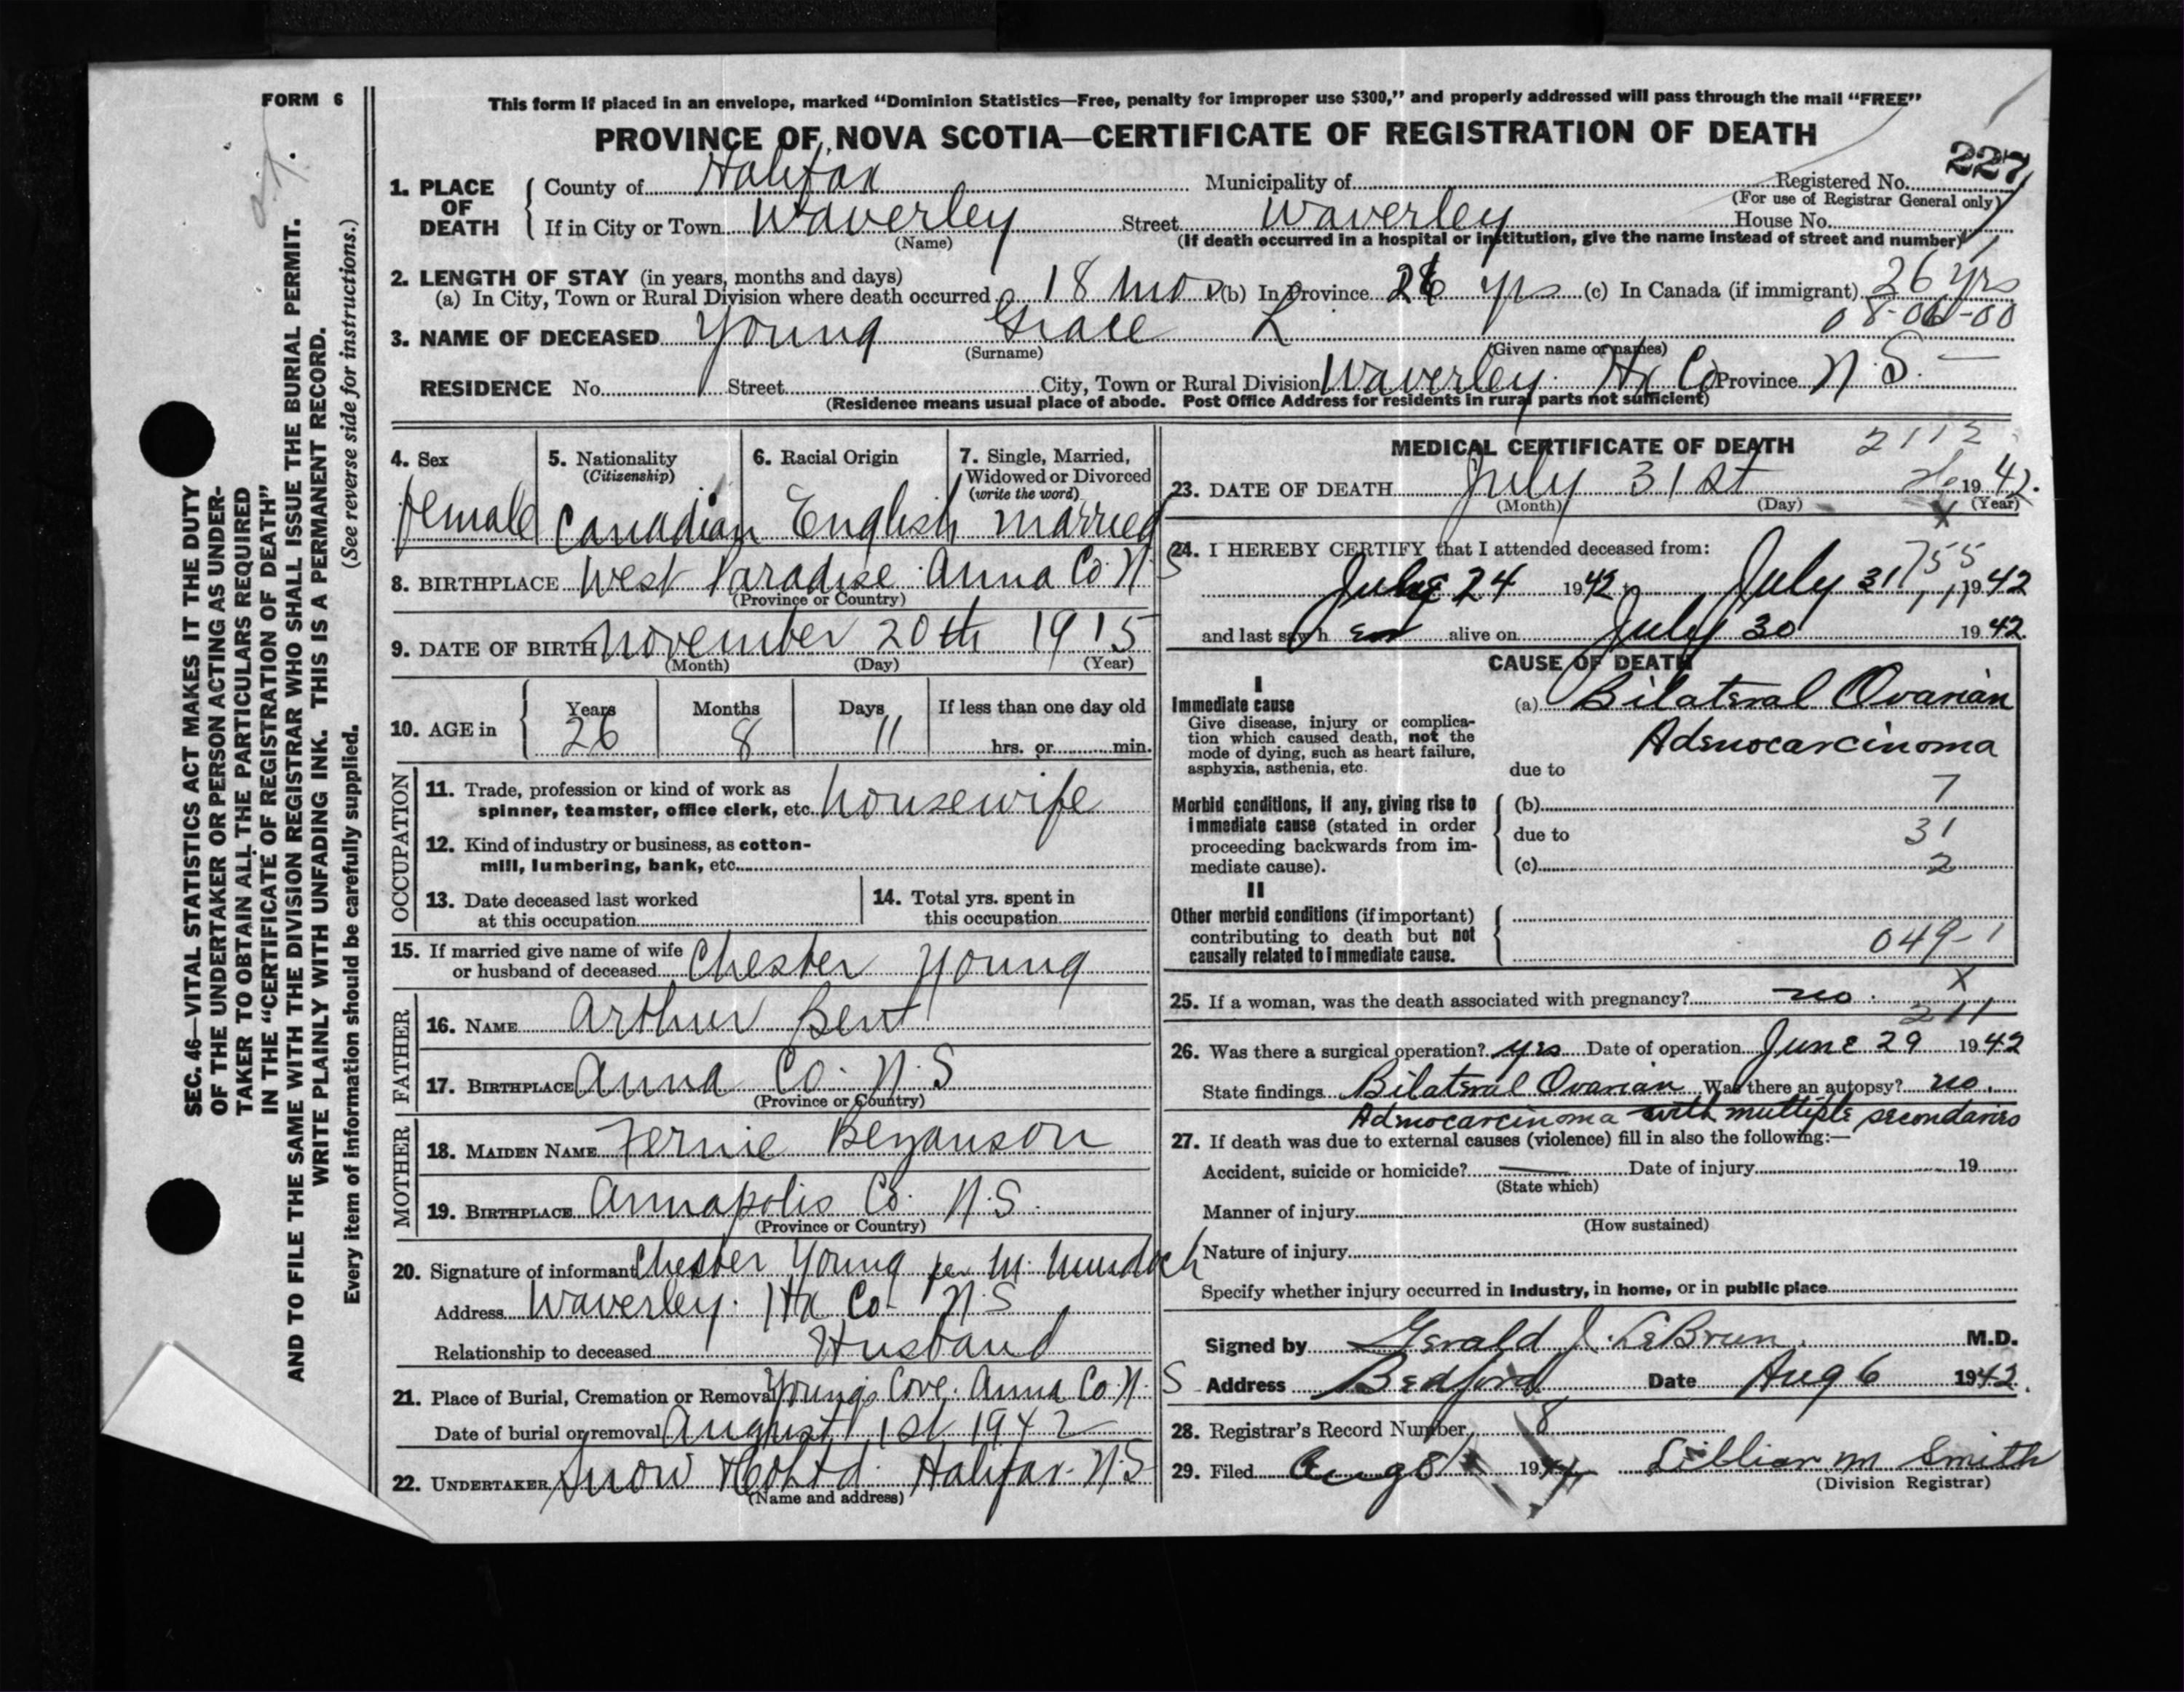 FORM 6
This form if placed in an envelope, marked “Dominion Statistics—Free, penalty for improper use $300,” and properly addressed will pass through the mail “FREE”
PROVINCE OF NOVA SCOTIA—CERTIFICATE OF REGISTRATION OF DEATH
227
1. PLACE OF DEATH
County of Halifax Municipality of Registered No.
(For use of Registrar General only)
If in City or Town Waverley Street Waverley House No.
(Name) (If death occurred in a hospital or institution, give the name instead of street and number)
2. LENGTH OF STAY (in years, months and days)
(a) In City, Town or Rural Division where death occurred 18 mos (b) In Province 26 yrs (c) In Canada (if immigrant) 26 yrs
08-06-00
3. NAME OF DECEASED Young Grace L
(Surname) (Given name or names)
RESIDENCE No. Street City, Town or Rural Division Waverley Hx Co Province N.S.
(Residence means usual place of abode. Post Office Address for residents in rural parts not sufficient)
4. Sex female
5. Nationality (Citizenship) Canadian
6. Racial Origin English
7. Single, Married, Widowed or Divorced (write the word) married
8. BIRTHPLACE West Paradise Anna Co. N S
(Province or Country)
9. DATE OF BIRTH November 20th 1915
(Month) (Day) (Year)
10. AGE in Years 26 Months 8 Days 11 If less than one day old
hrs. or min.
OCCUPATION
11. Trade, profession or kind of work as
spinner, teamster, office clerk, etc. housewife
12. Kind of industry or business, as cotton-
mill, lumbering, bank, etc.
13. Date deceased last worked
at this occupation
14. Total yrs. spent in
this occupation
15. If married give name of wife
or husband of deceased Chester Young
FATHER
16. NAME Arthur Bent
17. BIRTHPLACE Anna Co. N.S
(Province or Country)
MOTHER
18. MAIDEN NAME Fernie Bezanson
19. BIRTHPLACE Annapolis Co. N.S.
(Province or Country)
20. Signature of informant Chester Young per M. Murdoch
Address Waverley. Hx Co N.S
Relationship to deceased Husband
21. Place of Burial, Cremation or Removal Young's Cove. Anna Co. N. S
Date of burial or removal August 1st 1942
22. UNDERTAKER Snow & Co Ltd. Halifax. N.S
(Name and address)
MEDICAL CERTIFICATE OF DEATH
2112
23. DATE OF DEATH July 31st 1942.
(Month) (Day) (Year)
24. I HEREBY CERTIFY that I attended deceased from:
755
24 1942 to July 31 1942
and last saw h er alive on July 30 1942.
CAUSE OF DEATH
I
Immediate cause
Give disease, injury or complica-
tion which caused death, not the
mode of dying, such as heart failure,
asphyxia, asthenia, etc.
(a) Bilateral Ovarian
Adenocarcinoma
due to
Morbid conditions, if any, giving rise to
immediate cause (stated in order
proceeding backwards from im-
mediate cause).
(b) 7
due to 31
(c) 2
II
Other morbid conditions (if important)
contributing to death but not
causally related to immediate cause.
049-1
X
25. If a woman, was the death associated with pregnancy? no.
211
26. Was there a surgical operation? yes Date of operation June 29 1942
State findings Bilateral Ovarian Was there an autopsy? no.
Adenocarcinoma with multiple secondaries
27. If death was due to external causes (violence) fill in also the following:—
Accident, suicide or homicide? Date of injury 19
(State which)
Manner of injury
(How sustained)
Nature of injury
Specify whether injury occurred in industry, in home, or in public place
Signed by Gerald J. LeBrun. M.D.
Address Bedford Date Aug 6 1942.
28. Registrar's Record Number 8
29. Filed Aug 8 19 Lillian M Smith
(Division Registrar)
SEC. 46—VITAL STATISTICS ACT MAKES IT THE DUTY
OF THE UNDERTAKER OR PERSON ACTING AS UNDER-
TAKER TO OBTAIN ALL THE PARTICULARS REQUIRED
IN THE “CERTIFICATE OF REGISTRATION OF DEATH”
AND TO FILE THE SAME WITH THE DIVISION REGISTRAR WHO SHALL ISSUE THE BURIAL PERMIT.
WRITE PLAINLY WITH UNFADING INK. THIS IS A PERMANENT RECORD.
Every item of information should be carefully supplied. (See reverse side for instructions.)